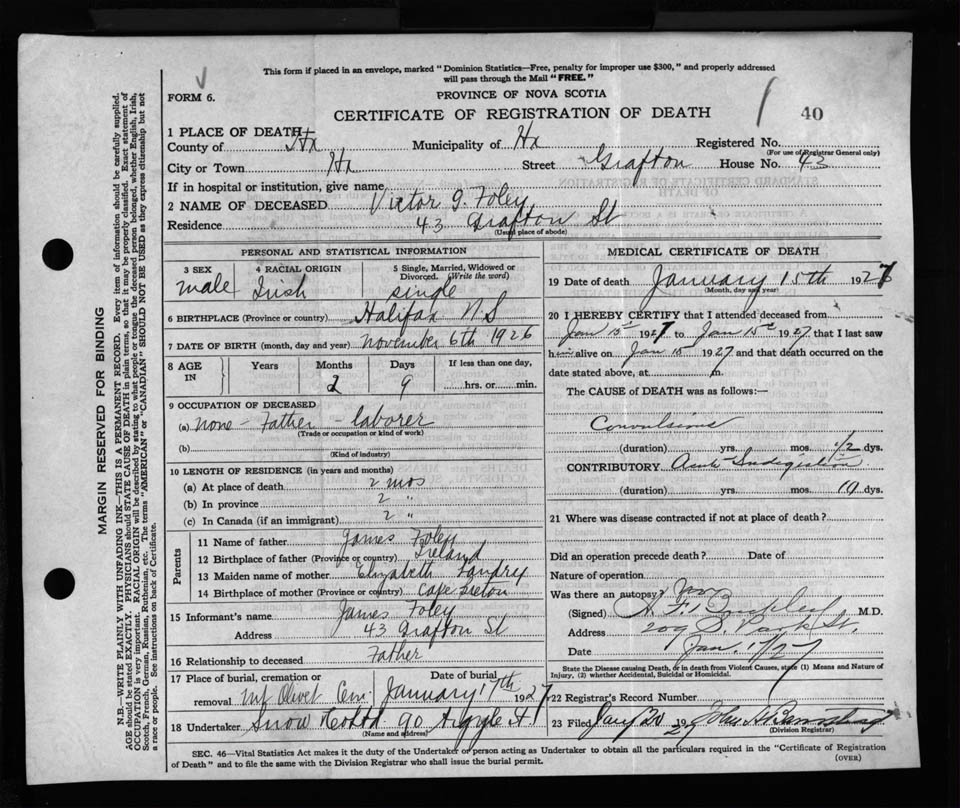 This form if placed in an envelope, marked "Dominion Statistics—Free, penalty for improper use $300," and properly addressed
will pass through the Mail "FREE."
FORM 6.
PROVINCE OF NOVA SCOTIA
CERTIFICATE OF REGISTRATION OF DEATH
40
1 PLACE OF DEATH
County of Hx Municipality of Hx Registered No.
(For use of Registrar General only)
City or Town Hx Street Grafton House No. 43
If in hospital or institution, give name
2 NAME OF DECEASED Victor J. Foley
Residence 43 Grafton St
(Usual place of abode)
PERSONAL AND STATISTICAL INFORMATION
3 SEX male
4 RACIAL ORIGIN Irish
5 Single, Married, Widowed or
Divorced. (Write the word)
single
6 BIRTHPLACE (Province or country) Halifax N S
7 DATE OF BIRTH (month, day and year) November 6th 1926
8 AGE IN Years Months 2 Days 9 If less than one day,
hrs. or min.
9 OCCUPATION OF DECEASED
(a) none - Father - laborer
(Trade or occupation or kind of work)
(b)
(Kind of industry)
10 LENGTH OF RESIDENCE (in years and months)
(a) At place of death 2 mos
(b) In province 2 "
(c) In Canada (if an immigrant) 2 "
Parents
11 Name of father James Foley
12 Birthplace of father (Province or country) Ireland
13 Maiden name of mother Elizabeth Landry
14 Birthplace of mother (Province or country) Cape Breton
15 Informant's name James Foley
Address 43 Grafton St
16 Relationship to deceased Father
17 Place of burial, cremation or
removal Mt Olivet Cem.
Date of burial
January 17th 1927
18 Undertaker Snow Co Ltd. 90 Argyle St
(Name and address)
MEDICAL CERTIFICATE OF DEATH
19 Date of death January 15th 1927
(Month, day and year)
20 I HEREBY CERTIFY that I attended deceased from
Jan 15 1927 to Jan 15 1927 that I last saw
him alive on Jan 15 1927 and that death occurred on the
date stated above, at m.
The CAUSE of DEATH was as follows:—
Convulsions
(duration) yrs. mos. 1/2 dys.
CONTRIBUTORY Acute Indigestion
(duration) yrs. mos. 10 dys.
21 Where was disease contracted if not at place of death?
Did an operation precede death? Date of
Nature of operation
Was there an autopsy? no
(Signed) M.D.
Address 209 S. Park St.
Date Jan. 17/27
State the Disease causing Death, or in death from Violent Causes, state (1) Means and Nature of
Injury, (2) whether Accidental, Suicidal or Homicidal.
22 Registrar's Record Number
23 Filed Jany 20 1927
(Division Registrar)
SEC. 46—Vital Statistics Act makes it the duty of the Undertaker or person acting as Undertaker to obtain all the particulars required in the "Certificate of Registration
of Death" and to file the same with the Division Registrar who shall issue the burial permit.
(OVER)
MARGIN RESERVED FOR BINDING
N.B.—WRITE PLAINLY WITH UNFADING INK—THIS IS A PERMANENT RECORD. Every item of information should be carefully supplied.
AGE should be stated EXACTLY. PHYSICIANS should STATE CAUSE OF DEATH in plain terms, so that it may be properly classified. Exact statement of
OCCUPATION is very important. RACIAL ORIGIN will be described by stating to what people or tongue the deceased person belonged, whether English, Irish,
Scotch, French, German, Russian, Ruthenian, etc. The terms "AMERICAN" or "CANADIAN" SHOULD NOT BE USED as they express citizenship but not
a race or people. See instructions on back of Certificate.